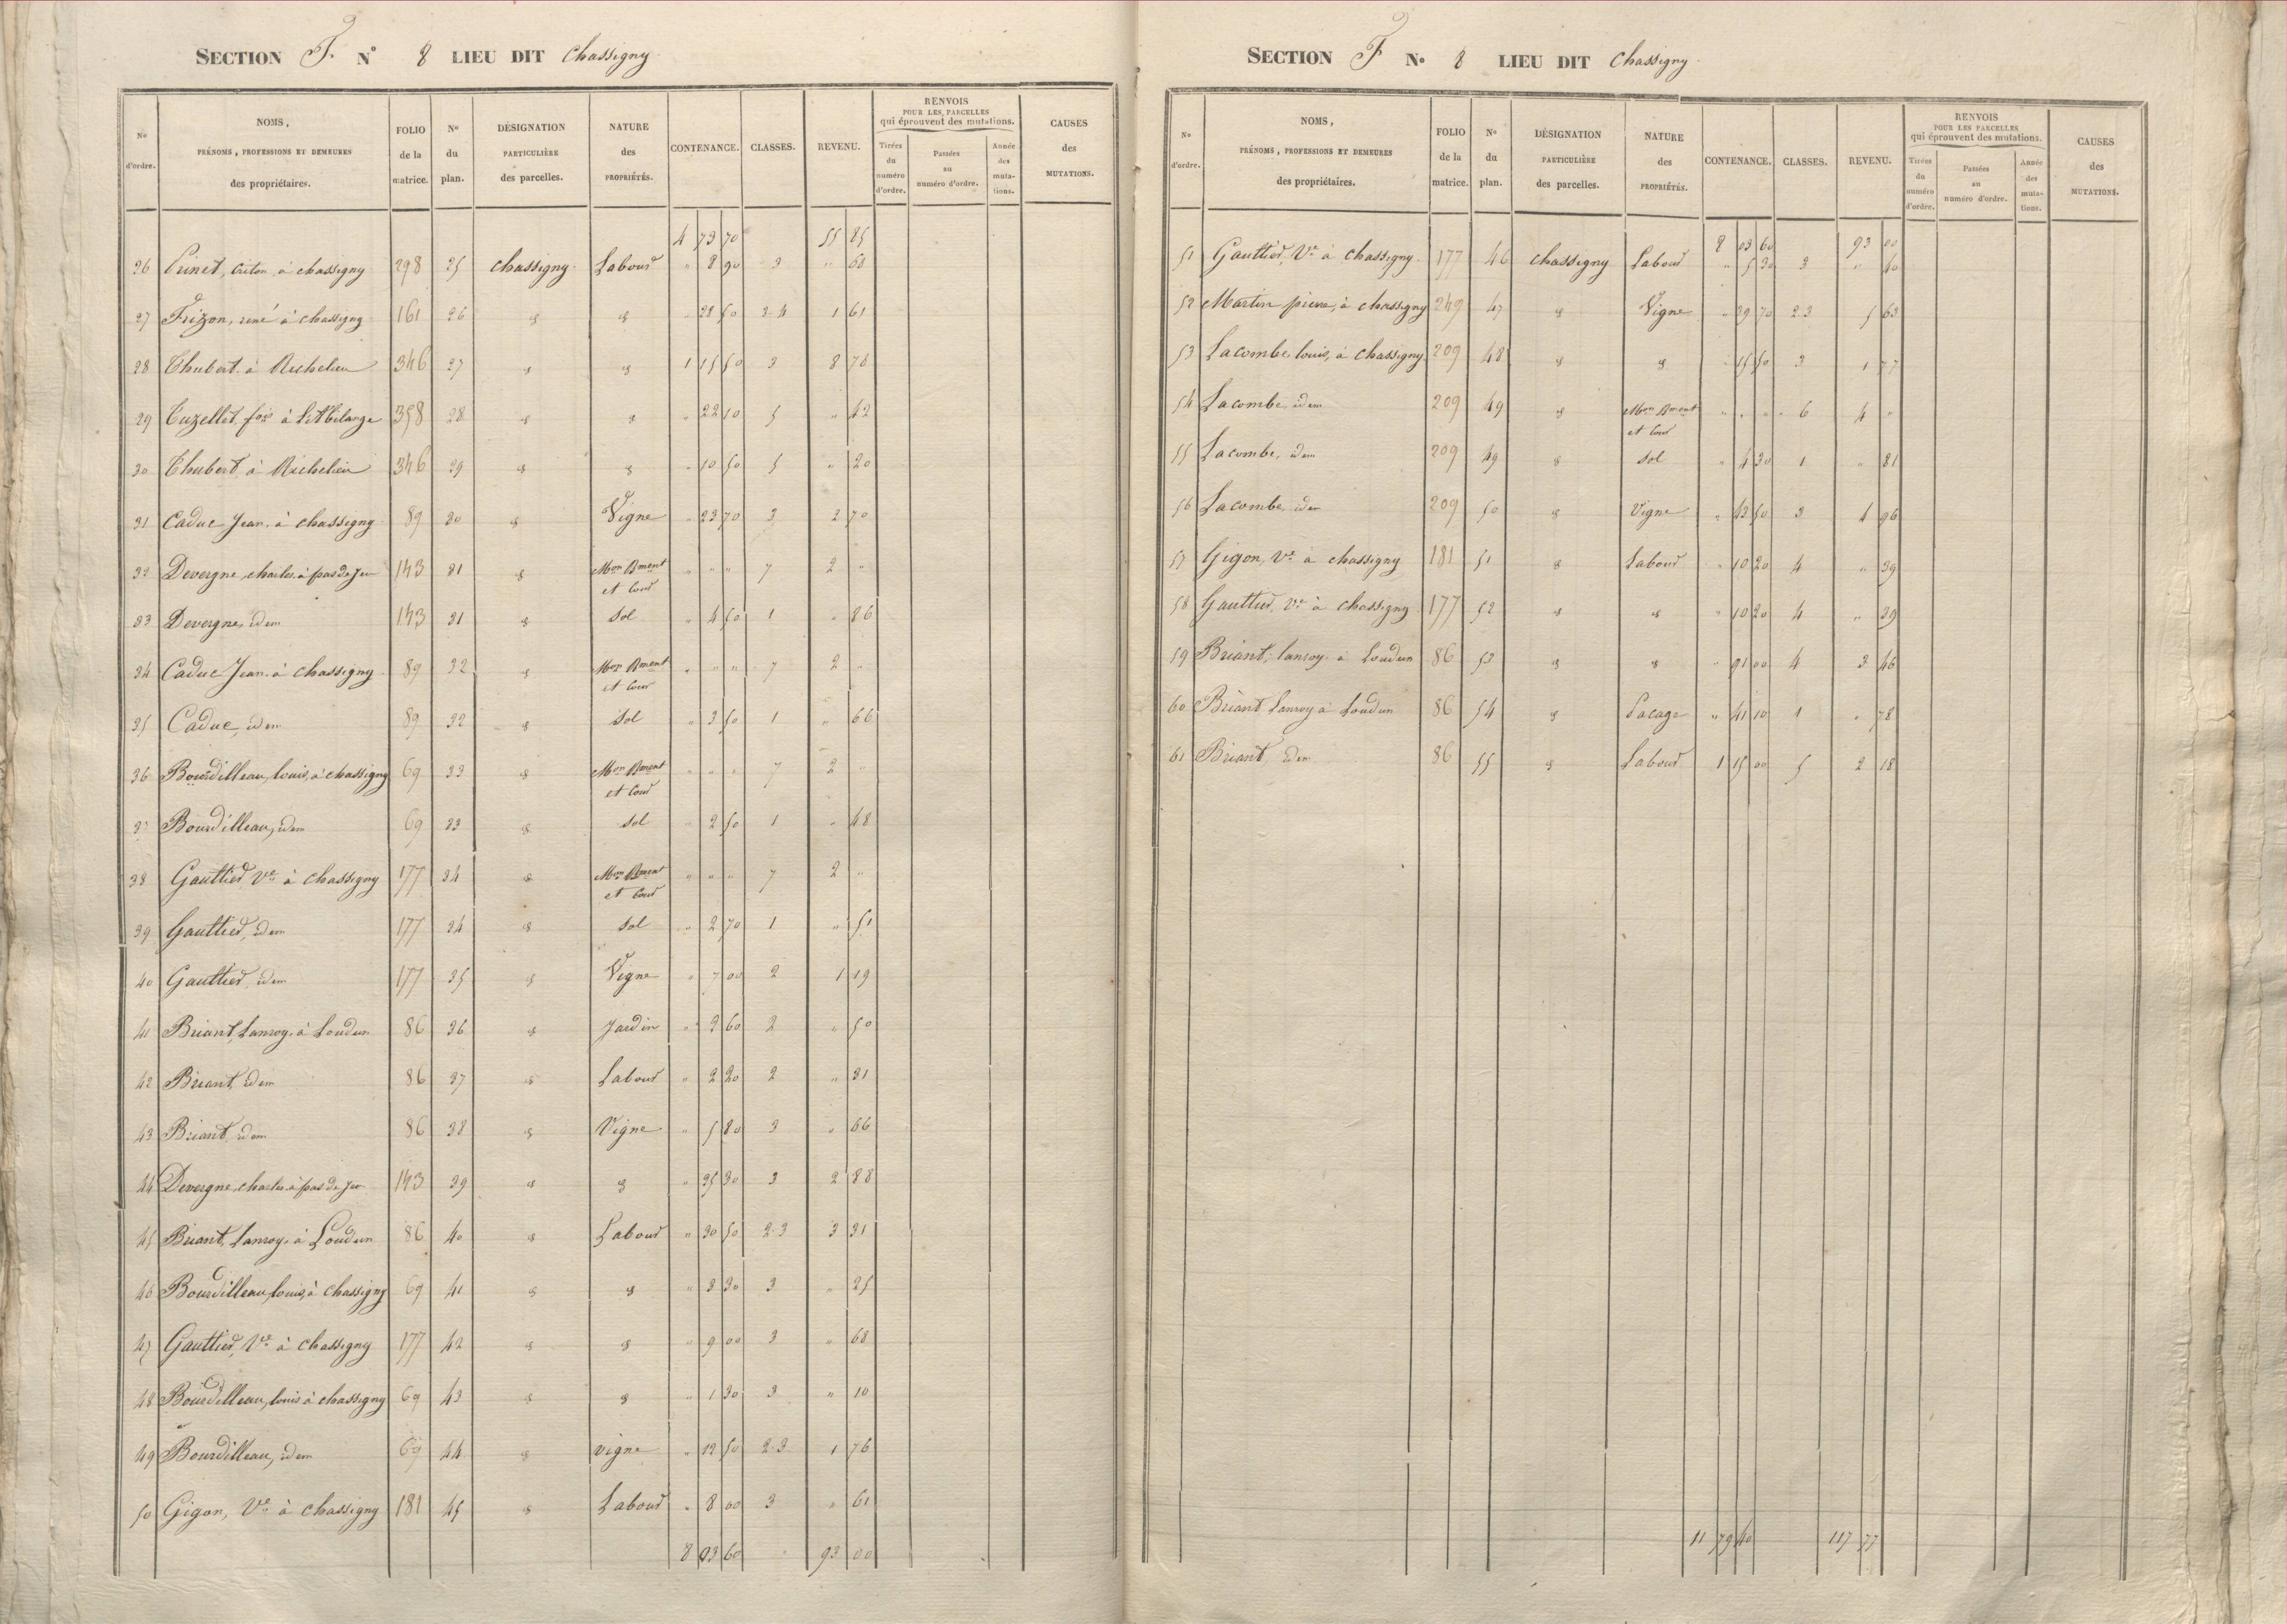 SECTION F. N° 8 LIEU DIT Chassigny
No d'ordre. NOMS, PRÉNOMS, PROFESSIONS ET DEMEURES des propriétaires. FOLIO de la matrice. No du plan. DÉSIGNATION PARTICULIÈRE des parcelles. NATURE des PROPRIÉTÉS. CONTENANCE. CLASSES. REVENU. RENVOIS POUR LES PARCELLES qui éprouvent des mutations. Tirées du numéro d'ordre. Passées au numéro d'ordre. Année des mutations. CAUSES des MUTATIONS.
4 73 70 55 85
26 Prinet, à chassigny 298 25 chassigny Labour " 8 90 3 " 68
27 Frizon, rené à chassigny 161 26 " " " 28 50 3.4 1 61
28 Thubert à Richelieu 346 27 " " 1 15 50 3 8 78
29 Tuzellet, fois à 358 28 " " " 22 10 5 " 42
30 Thubert à Richelieu 346 29 " " " 10 50 5 " 20
31 Caduc Jean, à chassigny 89 30 " Vigne " 23 70 3 2 70
32 Devergne, charles à pas de Jeu 143 31 " Mon Bment et Cour " " " 7 2 "
33 Devergne, idem 143 31 " Sol " 4 50 1 " 86
34 Caduc Jean, à chassigny 89 32 " Mon Bment et Cour " " " 7 2 "
35 Caduc, idem 89 32 " Sol " 3 50 1 " 66
36 Bourdilleau, louis, à chassigny 69 33 " Mon Bment et Cour " " " 7 2 "
37 Bourdilleau, idem 69 33 " Sol " 2 50 1 " 48
38 Gaultier Ve à chassigny 177 34 " Mon Bment et Cour " " " 7 2 "
39 Gaultier, idem 177 34 " Sol " 2 70 1 " 51
40 Gaultier, idem 177 35 " Vigne " 7 00 2 1 19
41 Briant, Lanroy, à Loudun 86 36 " Jardin " 2 60 2 " 50
42 Briant, idem 86 37 " Labour " 2 20 2 " 31
43 Briant, idem 86 38 " Vigne " 5 80 3 " 66
44 Devergne, charles à pas de Jeu 143 39 " " " 25 30 3 2 88
45 Briant, Lanroy, à Loudun 86 40 " Labour " 30 50 2.3 3 31
46 Bourdilleau, louis, à chassigny 69 41 " " " 3 30 3 " 25
47 Gaultier, Ve à chassigny 177 42 " " " 9 00 3 " 68
48 Bourdilleau, louis à chassigny 69 43 " " " 1 30 3 " 10
49 Bourdilleau, idem 69 44 " vigne " 12 50 2.3 1 76
50 Gigon, Ve à chassigny 181 45 " Labour " 8 00 3 " 61
8 03 60 93 00
SECTION F No 8 LIEU DIT Chassigny
No d'ordre. NOMS, PRÉNOMS, PROFESSIONS ET DEMEURES des propriétaires. FOLIO de la matrice. No du plan. DÉSIGNATION PARTICULIÈRE des parcelles. NATURE des PROPRIÉTÉS. CONTENANCE. CLASSES. REVENU. RENVOIS POUR LES PARCELLES qui éprouvent des mutations. Tirées du numéro d'ordre. Passées au numéro d'ordre. Année des mutations. CAUSES des MUTATIONS.
8 03 60 93 00
51 Gaultier, Ve à chassigny 177 46 chassigny Labour " 5 30 3 " 40
52 Martin pierre, à chassigny 249 47 " Vigne " 39 70 2.3 5 63
53 Lacombe, louis, à chassigny 209 48 " " " 15 50 3 1 77
54 Lacombe, idem 209 49 " Mon Bment et Cour " " " 6 4 "
55 Lacombe, idem 209 49 " Sol " 4 30 1 " 81
56 Lacombe, idem 209 50 " Vigne " 43 50 3 4 96
57 Gigon, Ve à chassigny 181 51 " Labour " 10 20 4 " 39
58 Gaultier, Ve à chassigny 177 52 " " " 10 20 4 " 39
59 Briant, Lanroy, à Loudun 86 53 " " " 91 00 4 3 46
60 Briant Lanroy à Loudun 86 54 " Pacage " 41 10 1 " 78
61 Briant, idem 86 55 " Labour 1 15 00 5 2 18
11 79 40 117 77